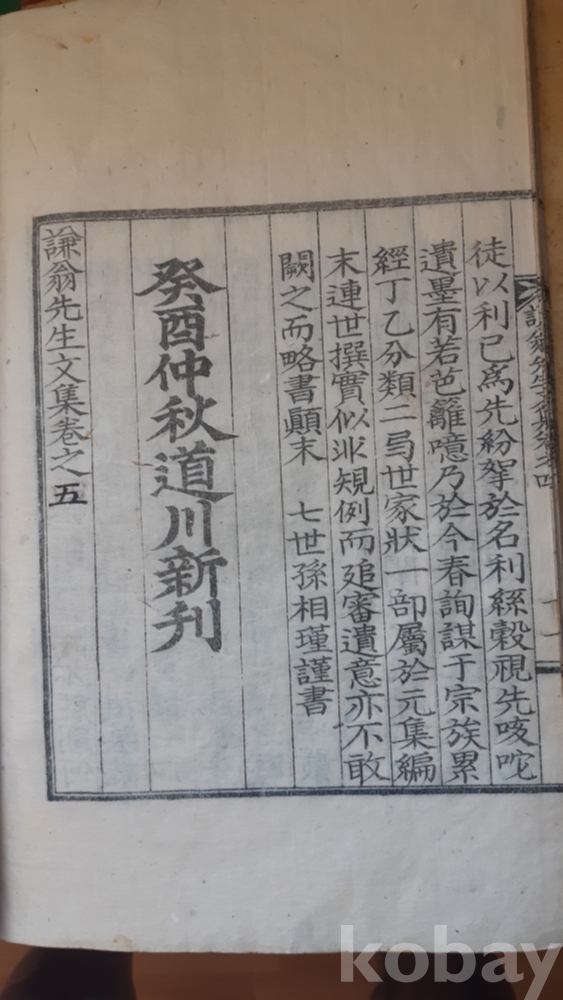 徒以利已爲先紛挐於名利絲穀視先咳咜
遺墨有若芭籬噫乃於今春詢謀于宗族累
經丁乙分類二弓世家狀一部屬於元集編
末連世撰實似非規例而追審遺意亦不敢
闕之而略書顚末 七世孫相瑾謹書
癸酉仲秋道川新刊
謙翁先生文集卷之五
kobay